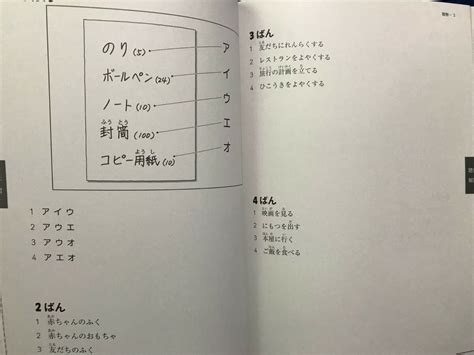 のり(5) ア
ボールペン(24) イ
ノート(10) ウ
封筒(100) エ
ふうとう
コピー用紙(10) オ
ようし
1 アイウ
2 アウエ
3 アウオ
4 アエオ
2ばん
1 赤ちゃんのふく
2 赤ちゃんのおもちゃ
3 友だちのふく
3ばん
1 友だちにれんらくする
2 レストランをよやくする
3 旅行の計画を立てる
4 ひこうきをよやくする
4ばん
1 映画を見る
2 にもつを出す
3 本屋に行く
4 ご飯を食べる